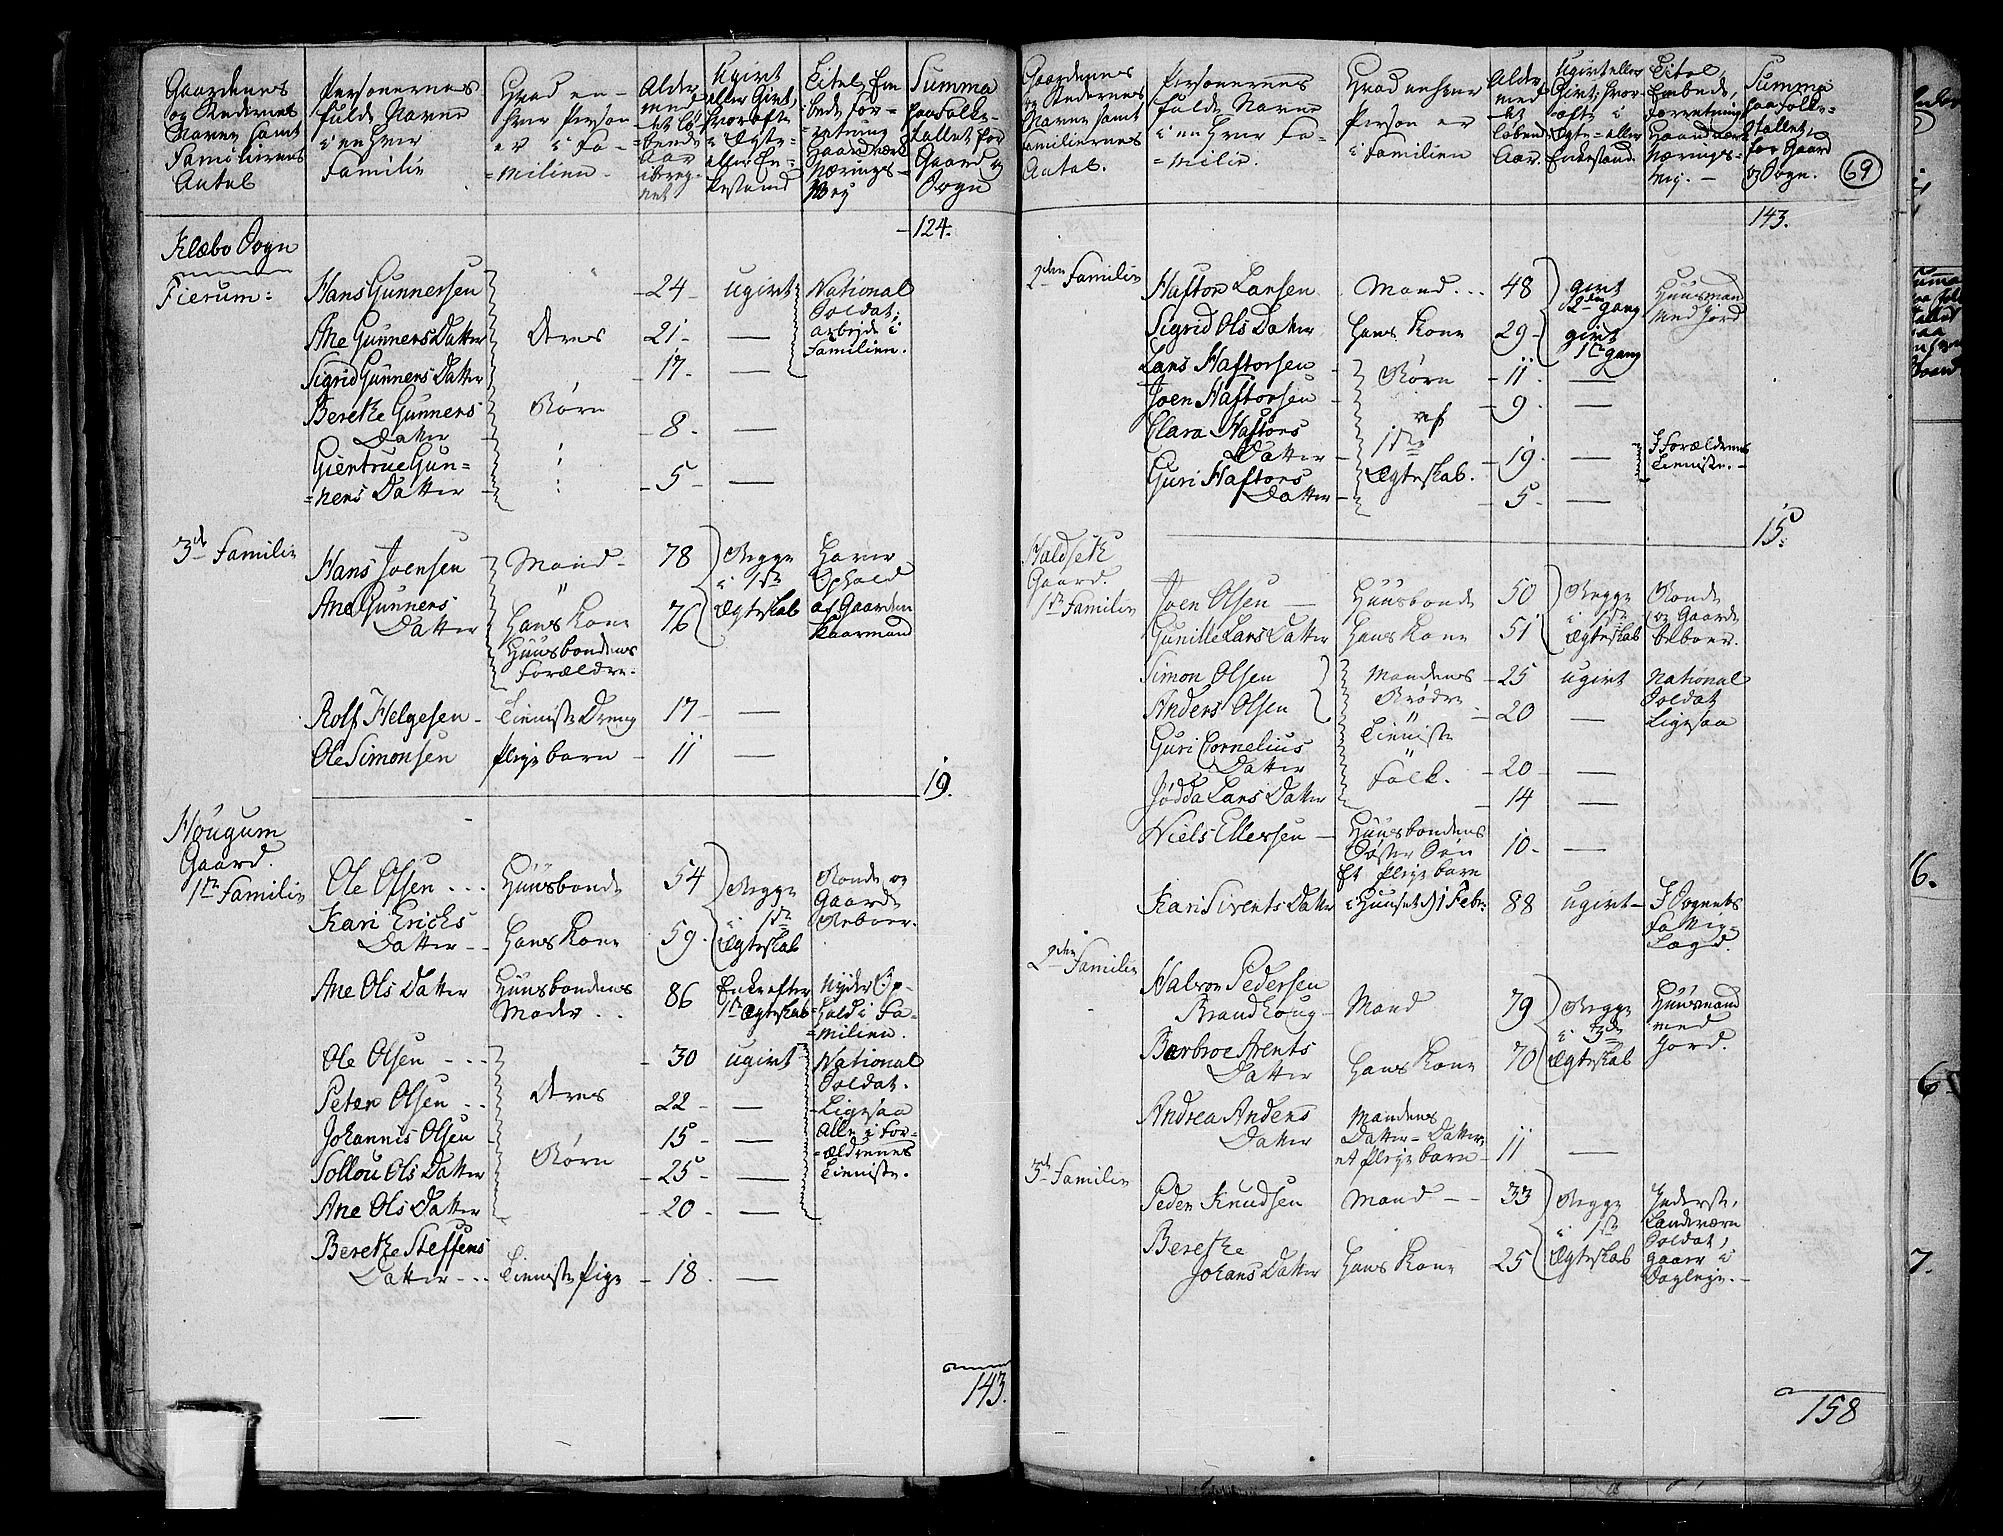 Gaardenes og Stedernes Navne samt Familiernes Antal
Personernes fulde Navne i enhver Familie
Hvad enhver Person er i Familien
Alder med det løbende Aar ibregnet
Ugivt eller Givt, hvor ofte i Ægte- eller Enkestand
Titel Embede Forretning Haandværk Nærings Vey
Summa paa Folketallet for Gaard og Sogn
124.
Klæbo Sogn
Fierum:
Hans Gunnersen 24 ugivt National Soldat; arbejde i Familien.
Ane Gunners Datter Deres 21 —
Sigrid Gunners Datter 17 —
Berethe Gunners Datter Børn 8 —
Gientrue Gunners Datter 5 —
3de Familie
Hans Joensen Mand 78 Begge i 1ste Ægteskab Haver Ophold af Gaarden Kaarmand
Ane Gunners Datter Hans Kone 76
Huusbondens Forældre.
Rolf Helgesen Tieniste Dreng 17 —
Ole Simonsen Pleyebarn 11 —
19.
Hougum Gaard.
1te Familie
Ole Olsen Huusbonde 54 Begge i 1ste Ægteskab Bonde og Gaard Beboer.
Kari Erichs Datter Hans Kone 59
Ane Ols Datter Huusbondens Moder 86 Enke efter 1te Ægteskab Nyder Ophold i Familien.
Ole Olsen 30 ugivt National Soldat.
Peter Olsen Deres 22 — Ligesaa
Johannis Olsen 15 — Alle i Forældrenes Tieniste.
Sollou Ols Datter Børn 25 —
Ane Ols Datter 20 —
Berethe Steffens Datter Tieniste Pige 18 —
143.
Gaardenes og Stedernes Navne samt Familiernes Antal.
Personernes fulde Navne i enhver Familie.
Hvad enhver Person er i Familien
Alder med det løbende Aar.
Ugivt eller Givt; hvor ofte i Ægte- eller Enkestand.
Titel, Embede, Forretning Haandværk Nærings-Vej.
Summa paa Folketallet for Gaard og Sogn.
69
143.
2den Familie
Haftor Larsen Mand 48 givt 2den gang Huusmand med Jord
Sigrid Ols Datter Hans Kone 29 givt 1te gang
Lars Haftorsen Børn 11 —
Joen Haftorsen af 9 —
Clara Haftors Datter 1ste 19 — I Forældrenes Tieniste.
Guri Haftors Datter Ægteskab. 5 —
15.
Haldseth Gaard.
1te Familie
Joen Olsen Huusbonde 50 Begge i 1ste Ægteskab Bonde og Gaard Beboer.
Gunille Lars Datter Hans Kone 51
Simon Olsen Mandens 25 ugivt National Soldat
Anders Olsen Brødre 20 — Ligesaa
Guri Cornelius Datter Tieniste 20 —
Jødda Lars Datter Folk. 14 —
Niels Ellersen Huusbondens Søster Søn Et Pleyebarn 10 —
Kari Sivents Datter i Huuset d 1 Febr: 88 ugivt I Sognets Fattig-Lægd.
2den Familie
Halvor Pedersen Brandhoug Mand 79 Begge i 3die Ægteskab Huusmand med Jord.
Barbroe Arents Datter Hans Kone 70
Andrea Anders Datter Mandens Datter-Datter, et Pleyebarn 11 —
3de Familie
Peder Knudsen Mand 33 Begge i 1ste Ægteskab Inderst, Landværn Soldat, gaaer i Dagleje.
Berethe Johans Datter Hans Kone 25
158
16.
6
7.